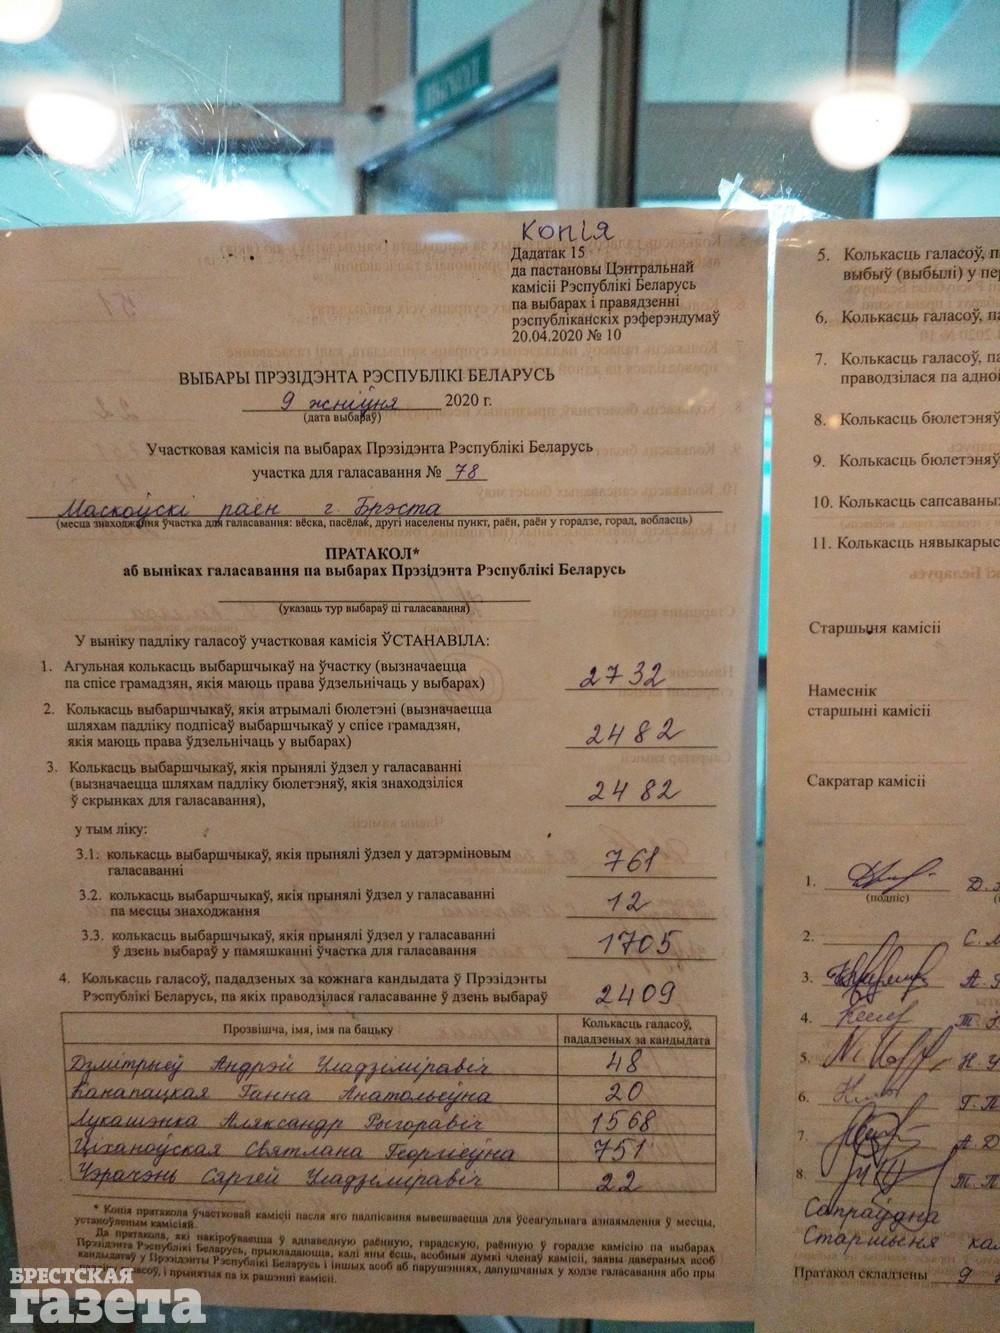 ВЫХОД
копія
Дадатак 15
да пастановы Цэнтральнай
камісіі Рэспублікі Беларусь
па выбарах і правядзенні
рэспубліканскіх рэферэндумаў
20.04.2020 № 10
ВЫБАРЫ ПРЭЗІДЭНТА РЭСПУБЛІКІ БЕЛАРУСЬ
9 жніўня 2020 г.
(дата выбараў)
Участковая камісія па выбарах Прэзідэнта Рэспублікі Беларусь
участка для галасавання № 78
Маскоўскі раён г. Брэста
(месца знаходжання ўчастка для галасавання: вёска, пасёлак, другі населены пункт, раён, раён у горадзе, горад, вобласць)
ПРАТАКОЛ*
аб выніках галасавання па выбарах Прэзідэнта Рэспублікі Беларусь
(указаць тур выбараў ці галасавання)
У выніку падліку галасоў участковая камісія ЎСТАНАВІЛА:
1. Агульная колькасць выбаршчыкаў на ўчастку (вызначаецца
па спісе грамадзян, якія маюць права ўдзельнічаць у выбарах) 2732
2. Колькасць выбаршчыкаў, якія атрымалі бюлетэні (вызначаецца
шляхам падліку подпісаў выбаршчыкаў у спісе грамадзян,
якія маюць права ўдзельнічаць у выбарах) 2482
3. Колькасць выбаршчыкаў, якія прынялі ўдзел у галасаванні
(вызначаецца шляхам падліку бюлетэняў, якія знаходзіліся
ў скрынках для галасавання), 2482
у тым ліку:
3.1. колькасць выбаршчыкаў, якія прынялі ўдзел у датэрміновым
галасаванні 761
3.2. колькасць выбаршчыкаў, якія прынялі ўдзел у галасаванні
па месцы знаходжання 12
3.3. колькасць выбаршчыкаў, якія прынялі ўдзел у галасаванні
ў дзень выбараў у памяшканні ўчастка для галасавання 1705
4. Колькасць галасоў, пададзеных за кожнага кандыдата ў Прэзідэнты
Рэспублікі Беларусь, па якіх праводзілася галасаванне ў дзень выбараў 2409
Прозвішча, імя, імя па бацьку
Колькасць галасоў,
пададзеных за кандыдата
Дзмітрыеў Андрэй Уладзіміравіч 48
Канапацкая Ганна Анатольеўна 20
Лукашэнка Аляксандр Рыгоравіч 1568
Ціханоўская Святлана Георгіеўна 751
Чэрачэнь Сяргей Уладзіміравіч 22
* Копія пратакола ўчастковай камісіі пасля яго падпісання вывешваецца для ўсеагульнага азнаямлення ў месцы,
устаноўленым камісіяй.
Да пратакола, які накіроўваецца ў адпаведную раённую, гарадскую, раённую ў горадзе камісію па выбарах
Прэзідэнта Рэспублікі Беларусь, прыкладаюцца, калі яны ёсць, асобныя думкі членаў камісіі, заявы давераных асоб
кандыдатаў у Прэзідэнты Рэспублікі Беларусь і іншых асоб аб парушэннях, дапушчаных у ходзе галасавання або пры
галасоў, і прынятыя па іх рашэнні камісіі.
5. Колькасць галасоў, п
выбыў (выбылі) у пер
6. Колькасць галасоў, па
7. Колькасць галасоў, па
праводзілася па адной
8. Колькасць бюлетэняў
9. Колькасць бюлетэняў
10. Колькасць сапсаваных
11. Колькасць нявыкарыс
Старшыня камісіі
Намеснік
старшыні камісіі
Сакратар камісіі
1. Д.
(подпіс)
2. С. М
3. А. Я
4. Т.
5. Н. У
6. Г. П
7. А. Д
8. Т. П
Сапраўдна
Старшыня ка
Пратакол складзены 9
БРЕСТСКАЯ
газета